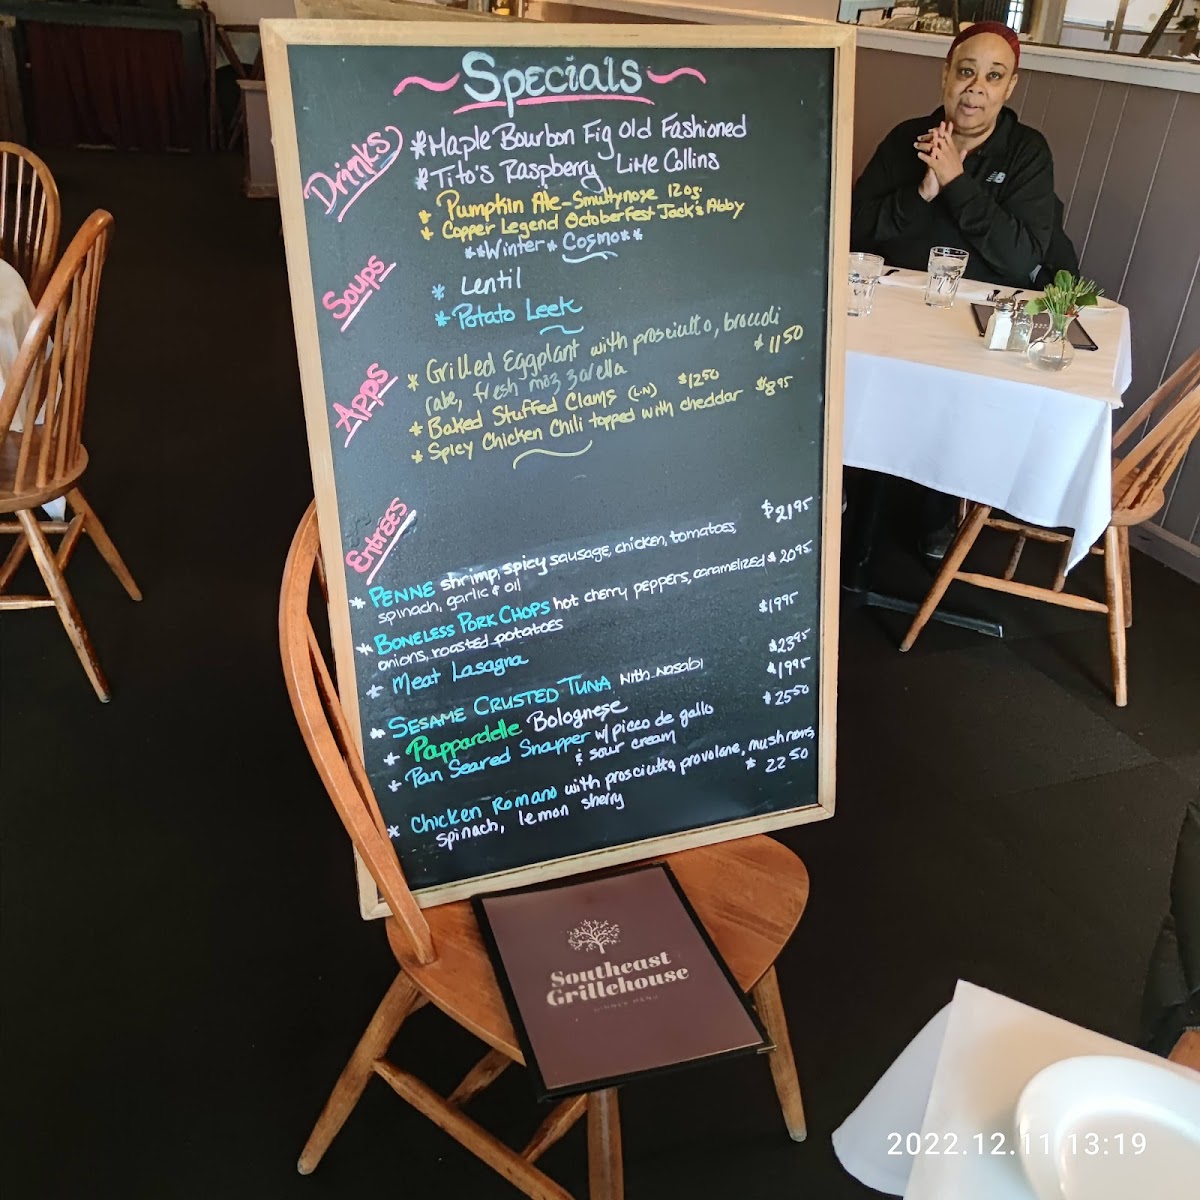 Specials
Drinks
*Maple Bourbon Fig Old Fashioned
*Tito's Raspberry Lime Collins
* Pumpkin Ale-Smuttynose 12oz.
* Copper Legend Octoberfest Jack's Abby
**Winter* Cosmo**
Soups
* Lentil
* Potato Leek
Apps
* Grilled Eggplant with prosciutto, broccoli
rabe, fresh mozzarella $1150
* Baked Stuffed Clams (L-N) $1250
* Spicy Chicken Chili topped with cheddar $895
Entrées
$2195
* Penne shrimp, spicy sausage, chicken, tomatoes,
spinach, garlic & oil
* Boneless Pork Chops hot cherry peppers, caramelized $2095
onions, roasted potatoes
* Meat Lasagna $1995
* Sesame Crusted Tuna with wasabi $2395
* Pappardelle Bolognese $1995
* Pan Seared Snapper w/ picco de gallo $2550
& sour cream
* Chicken Romano with prosciutto, provolone, mushrooms,
spinach, lemon sherry * 2250
Southeast
Grillehouse
DINNER MENU
2022.12.11 13:19